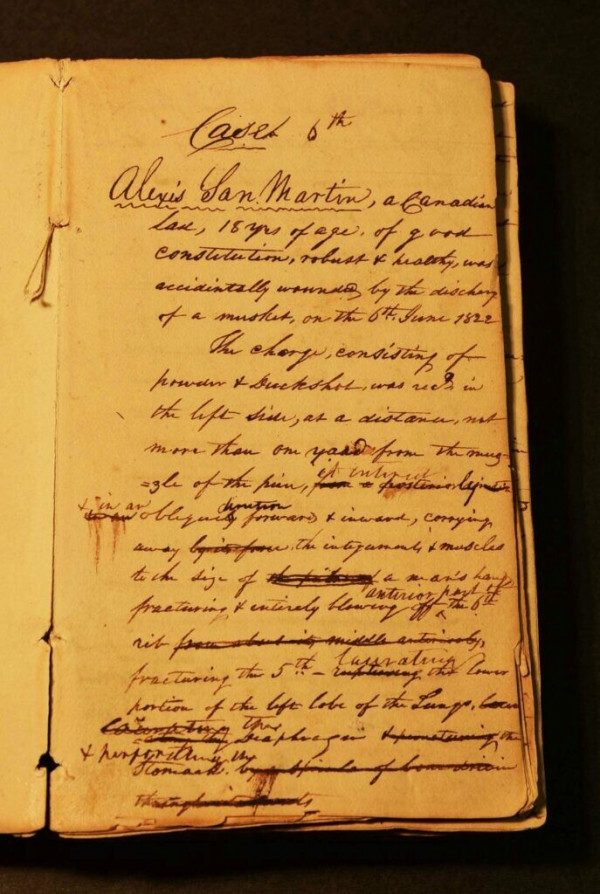 Case 6th
Alexis San Martin, a Canadian
lad, 18 yrs of age, of good
constitution, robust & healthy, was
accidentally wounded by the discharg
of a musket, on the 6th June 1822
The charge, consisting of
powder & Duckshot, was recd in
the left side, at a distance, not
more than one yard from the muz-
=zle of the piece, it entered posteriorly
& in an obliquely direction forward & inward, carrying
away by its force the integuments & muscles
to the size of a man's hand
fracturing & entirely blowing off anterior part of the 6th
rib from about its middle anteriorly,
fracturing the 5th - lacerating rupturing the lower
portion of the left lobe of the Lungs,
lacerating the diaphragm & puncturing the
& perforating the
Stomach. by a spicula of bone driven
through its